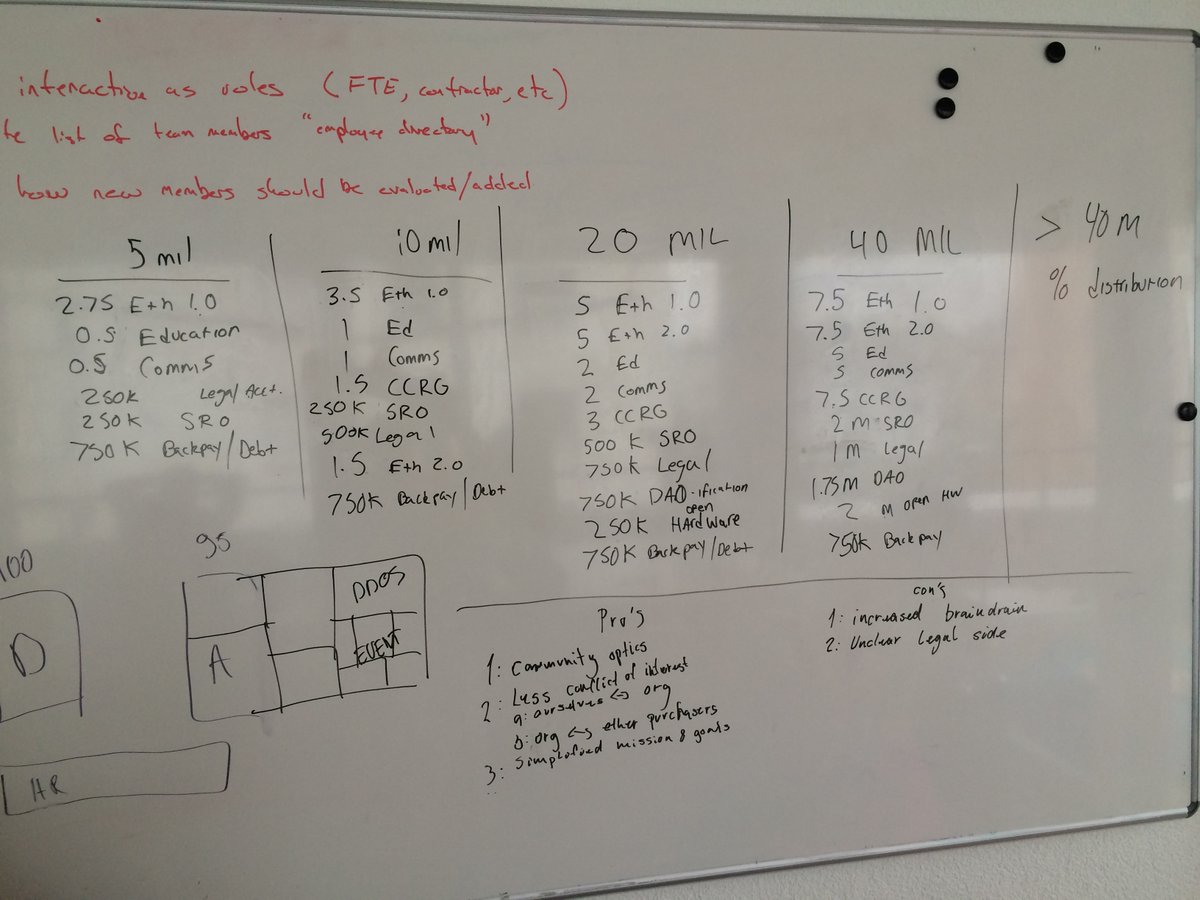 interaction as roles (FTE, contractor, etc)
te list of team members "employee directory"
how new members should be evaluated/added
5 mil
2.75 Eth 1.0
0.5 Education
0.5 Comms
250K Legal/Acct.
250K SRO
750K Backpay/Debt
10 mil
3.5 Eth 1.0
1 Ed
1 Comms
1.5 CCRG
250K SRO
500K Legal
1.5 Eth 2.0
750K Backpay/Debt
20 MIL
5 Eth 1.0
5 Eth 2.0
2 Ed
2 Comms
3 CCRG
500K SRO
750K Legal
750K DAO-ification
open
250K HArdware
750K Backpay/Debt
40 MIL
7.5 Eth 1.0
7.5 Eth 2.0
5 Ed
5 comms
7.5 CCRG
2M SRO
1M Legal
1.75M DAO
2 M open HW
750K Backpay
> 40M
% distribution
100
D
HR
95
A
DDOS
EVENT
Pro's
1: Community optics
2: Less conflict of interest
a: ourselves <-> org
b: org <-> ether purchasers
3: Simplofued mission & goals
con's
1: increased braindrain
2: Unclear legal side